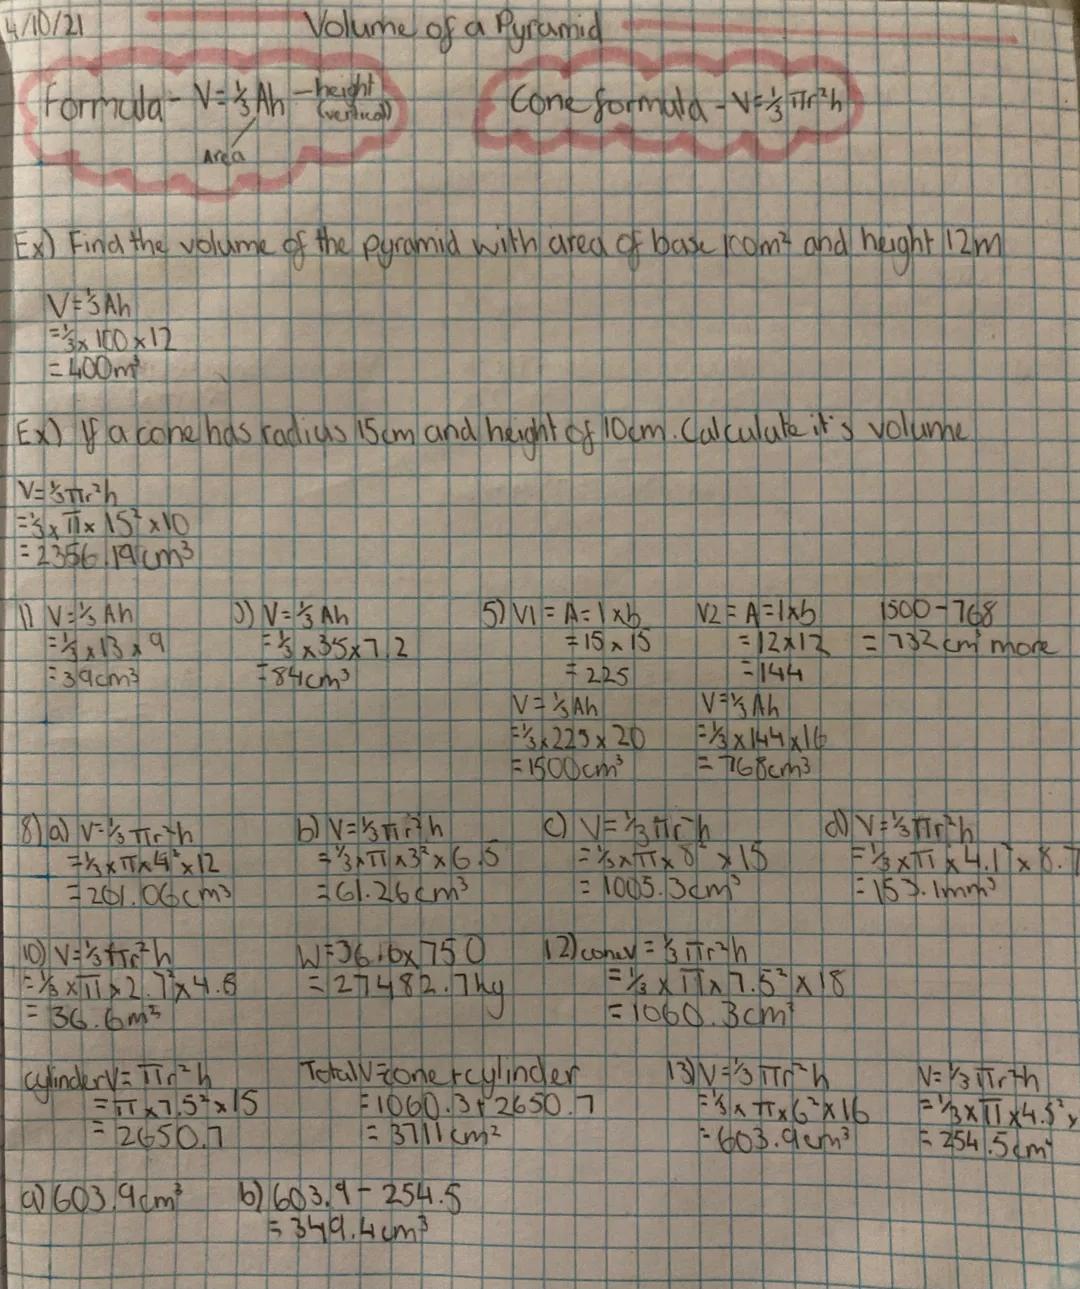 4/10/21 Volume of a Pyramid
Formula - V=⅓Ah - height (vertical)
Area
Cone formula - V=⅓πr²h
Ex) Find the volume of the pyramid with area of base 100m² and height 12m
V=⅓Ah
=⅓×100×12
=400m³
Ex) If a cone has radius 15cm and height of 10cm. Calculate it's volume
V=⅓πr²h
=⅓×π×15²×10
=2356.19cm³
1) V=⅓Ah
=⅓×13×9
=39cm³
3) V=⅓Ah
=⅓×35×7.2
=84cm³
5) V1 = A=l×b
=15×15
=225
V=⅓Ah
=⅓×225×20
=1500cm³
V2 = A=l×b
=12×12
=144
V=⅓Ah
=⅓×144×16
=768cm³
1500-768
=732cm³ more
8) a) V=⅓πr²h
=⅓×π×4²×12
=201.06cm³
b) V=⅓πr²h
=⅓×π×3²×6.5
=61.26cm³
c) V=⅓πr²h
=⅓×π×8²×15
=1005.3cm³
d) V=⅓πr²h
=⅓×π×4.1²×8.7
=153.1mm³
10) V=⅓πr²h
=⅓×π×2.7²×4.8
=36.6m³
W=36.6×750
=27482.7kg
12) cone V=⅓πr²h
=⅓×π×7.5²×18
=1060.3cm³
cylinder V=πr²h
=π×7.5²×15
=2650.7
Total V=cone+cylinder
=1060.3+2650.7
=3711cm²
13) V=⅓πr²h
=⅓×π×6²×16
=603.9cm³
V=⅓πr²h
=⅓×π×4.5²×
=254.5cm³
a) 603.9cm³
b) 603.9-254.5
=349.4cm³